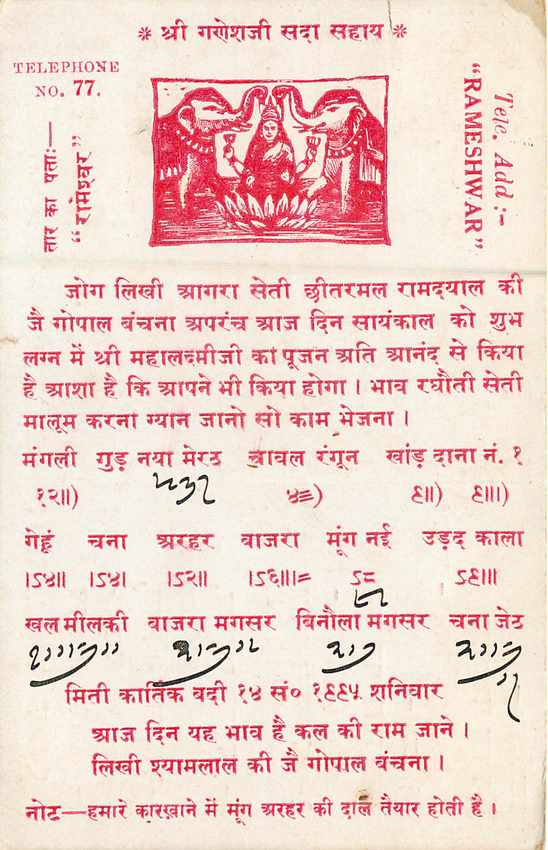 ❊ श्री गणेशजी सदा सहाय ❊
TELEPHONE
NO. 77.
तार का पताः—
“रामेश्वर”
Tele. Add :-
“RAMESHWAR”
जोग लिखी आगरा सेती छीतरमल रामदयाल की
जै गोपाल बंचना अपरंच आज दिन सायंकाल को शुभ
लग्न में श्री महालक्ष्मीजी का पूजन अति आनंद से किया
है आशा है कि आपने भी किया होगा । भाव रघौती सेती
मालूम करना ग्यान जानो सो काम भेजना ।
मंगली गुड़ नया मेरठ चावल रंगून खांड़ दाना नं. १
१२॥) ४≡) ६॥) ६॥।)
गेहूं चना अरहर वाजरा मूंग नई उड़द काला
।ऽ४॥ ।ऽ४। ।ऽ२॥ ।ऽ६॥।= ऽ८ ऽ६॥।
खल मीलकी वाजरा मगसर बिनौला मगसर चना जेठ
मिती कार्तिक बदी १४ सं० १६६५ शनिवार
आज दिन यह भाव है कल की राम जाने ।
लिखी श्यामलाल की जै गोपाल बंचना ।
नोट—हमारे कारखाने में मूंग अरहर की दाल तैयार होती है ।